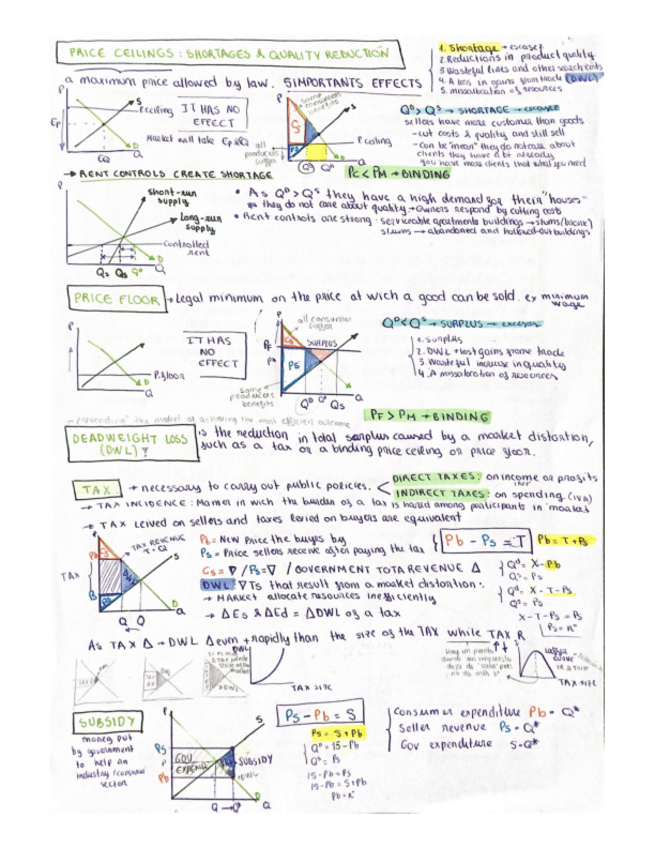 PRICE CEILINGS: SHORTAGES & QUALITY REDUCTION
1. Shortage → escasez
2. Reductions in product quality
3. Wasteful lines and other search costs
4. A loss in gains from trade (DWL)
5. missallocation of resources
a maximum price allowed by law. 5 IMPORTANTS EFFECTS
P.ceiling
IT HAS NO EFFECT
Market will take Ep & Q
S
D
Q
EQ
Ep
P.ceiling
QD > QS → SHORTAGE → escasez
sellers have more customer than goods
-cut costs & quality and still sell
-Can be "mean" they do not care about
clients they have a lot already
Pc < PM → BINDING
→ RENT CONTROLS CREATE SHORTAGE
short-run supply
Long-run supply
Controlled rent
Qs Qs QD
• As QD > QS they have a high demand for their "houses"
they do not care about quality → owners respond by cutting costs
• Rent controls are strong: serviceable apartments buildings → slums
slums → abandoned and hollowed-out buildings
PRICE FLOOR → Legal minimum on the price at wich a good can be sold. ex minimum wage
IT HAS NO EFFECT
P.floor
all consumer
SURPLUS
PS
some producers benefits
QD Q* QS
QD < QS → SURPLUS
1. Surplus
2. DWL → lost gains from trade
3. Wasteful increase in quality
4. A missallocation of resources
PF > PM → BINDING
DEADWEIGHT LOSS (DWL)
is the reduction in total surplus caused by a market distortion,
such as a tax or a binding price ceiling or price floor.
TAX → necessary to carry out public policies.
DIRECT TAXES: on income or profits
INDIRECT TAXES: on spending (IVA)
→ TAX INCIDENCE: Manner in wich the burden of a tax is shared among participants in market
→ TAX levied on sellers and taxes levied on buyers are equivalent
TAX REVENUE T·Q
TAX
DWL
Pb = New Price the buyers by
Ps = Price sellers receive after paying the tax
Pb - Ps = T
Pb = T + Ps
Cs = ∇ / Ps = ∇ / GOVERNMENT TOTAL REVENUE Δ
DWL: ∇ Ts that result from a market distortion:
→ MARKET allocate resources inefficiently
→ ΔEs & ΔEd = ΔDWL of a tax
Qd = X - Pb
Qs = Ps
Qd = X - T - Ps
Qs = Ps
X - T - Ps = Ps
As TAX Δ → DWL Δ even + rapidly than the size of the TAX while TAX R
DWL
TAX SIZE
Laffer curve
TAX SIZE
SUBSIDY
money put by government to help an industry/consumer sector
Ps
P
Pb
GOV EXPEND
SUBSIDY
Q → Q
Ps - Pb = S
Ps = S + Pb
QD = 15 - Pb
Qs = Ps
15 - Pb = Ps
15 - Pb = S + Pb
Consumer expenditure Pb · Q*
Seller revenue Ps · Q*
Gov expenditure S · Q*